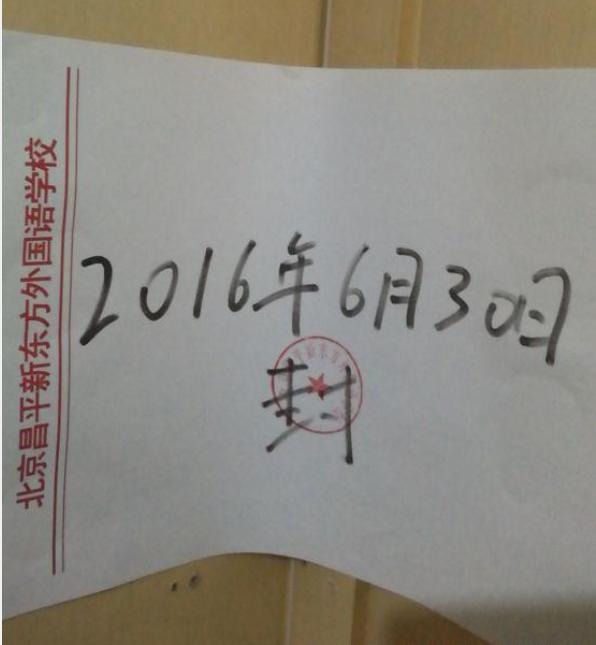 北京昌平新东方外国语学校
2016年6月30日
封